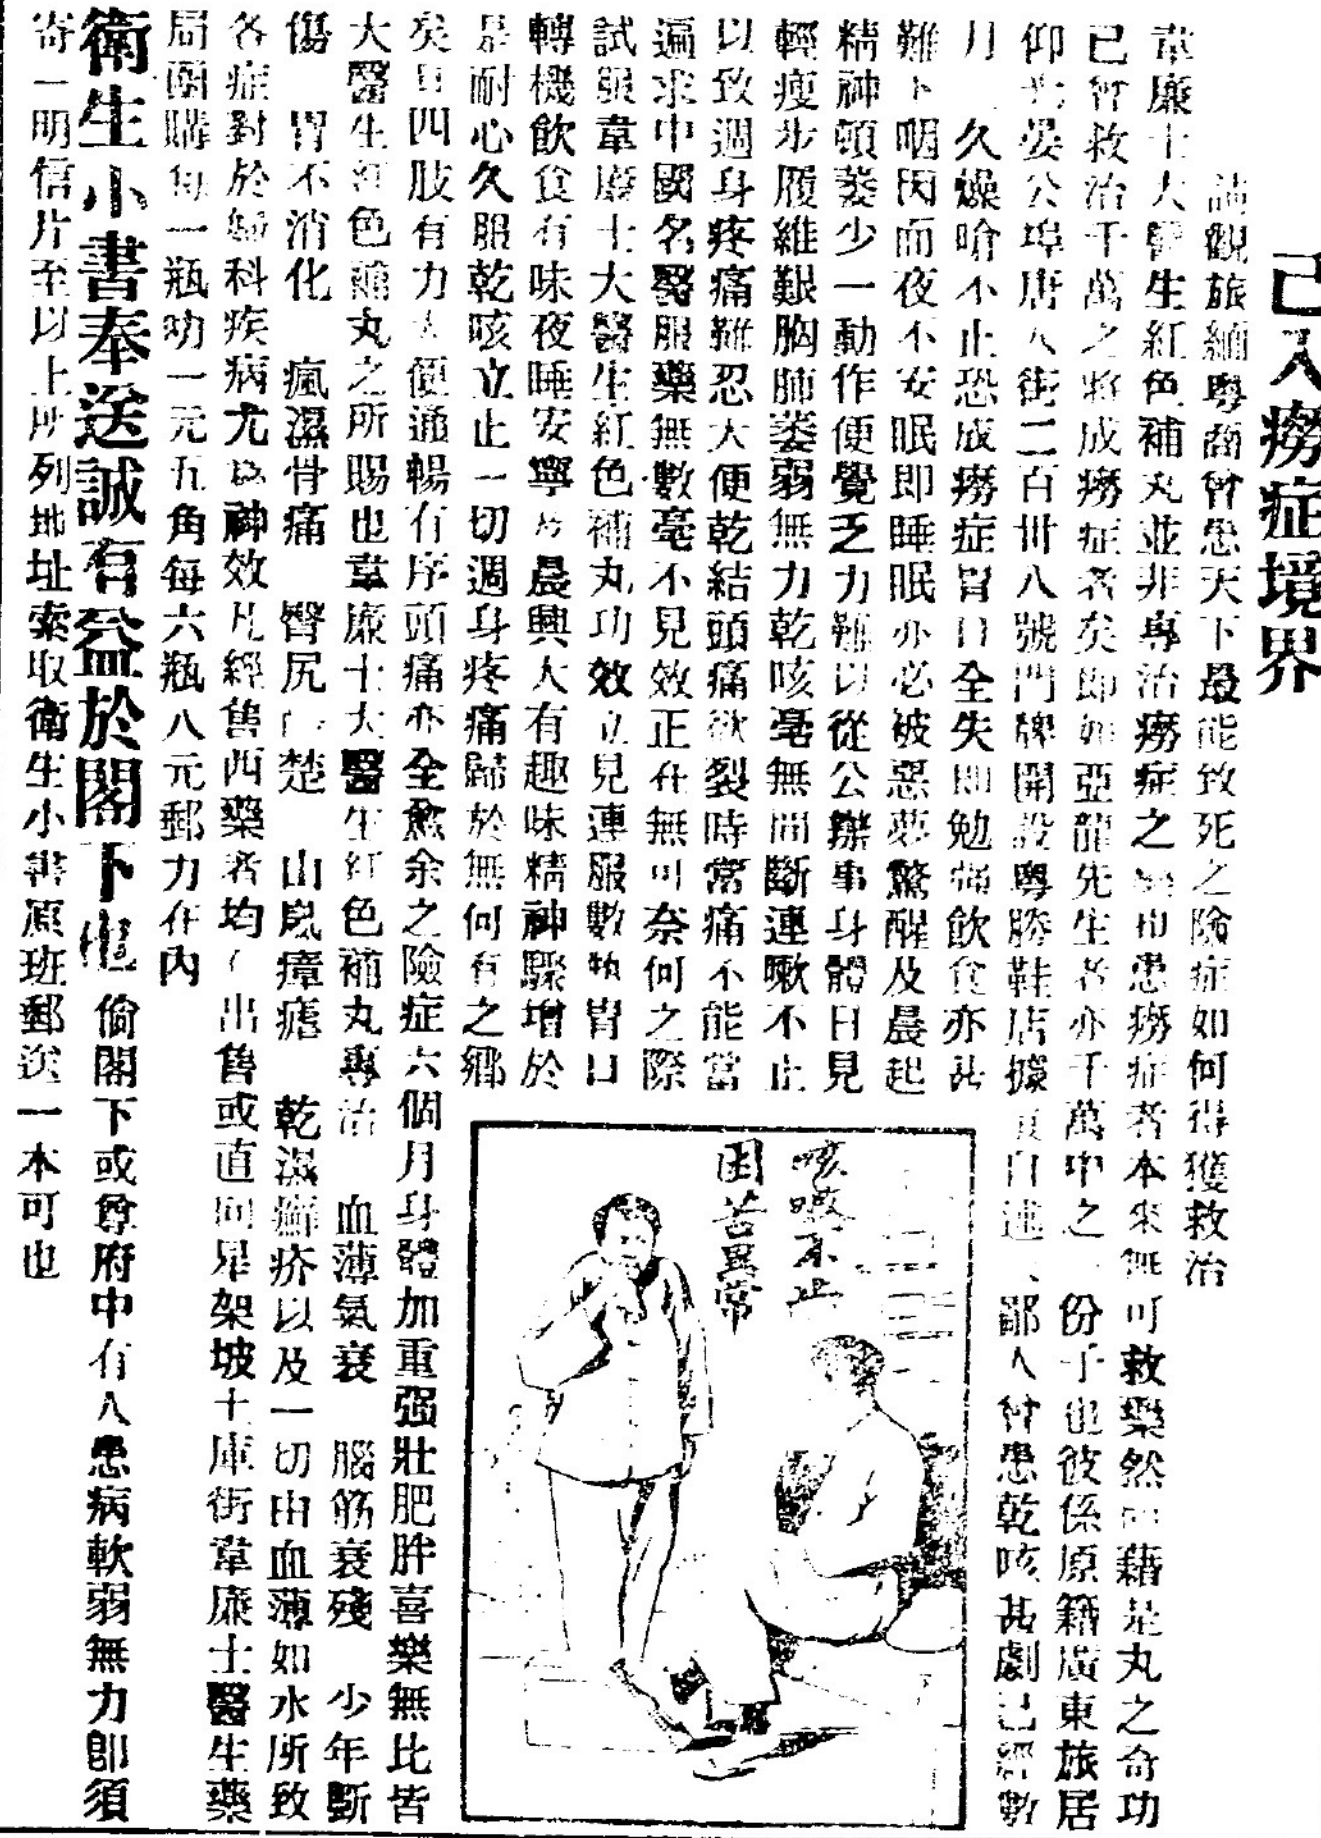 已入癆症境界
請觀旅緬粵商曾患天下最能致死之險症如何得獲救治
韋廉士大醫生紅色補丸並非專治癆症之 患癆症者本來無可救藥然而藉是丸之奇功
已曾救治千萬之將成癆症者矣即如亞龍先生者亦千萬中之一份子也彼係原籍廣東旅居
仰光晏公埠唐人街二百卅八號門牌開設粵勝鞋店據 自述 鄙人曾患乾咳甚劇已經數
月 久燥嗆不止恐成癆症胃口全失即勉強飲食亦甚
難下咽因而夜不安眠即睡眠亦必被惡夢驚醒及晨起
精神頓萎少一動作便覺乏力難以從公辦事身體日見
輕瘦步履維艱胸肺萎弱無力乾咳毫無間斷連嗽不止
以致週身疼痛難忍大便乾結頭痛欲裂時常痛不能當
遍求中國名醫服藥無數毫不見效正在無可奈何之際
試服韋廉士大醫生紅色補丸功效立見連服數 胃口
轉機飲食有味夜睡安寧及晨興大有趣味精神驟增於
是耐心久服乾咳立止一切週身疼痛歸於無何有之鄉
矣且四肢有力大便通暢有序頭痛亦全愈余之險症六個月身體加重强壯肥胖喜樂無比皆
大醫生紅色補丸之所賜也韋廉士大醫生紅色補丸專治 血薄氣衰 腦筋衰殘 少年斲
傷 胃不消化 瘋濕骨痛 臀尻 楚 山嵐瘴瘧 乾濕癬疥以及一切由血薄如水所致
各症對於婦科疾病尤為神效凡經售西藥者均有出售或直向星架坡十庫街韋廉士醫生藥
局函購每一瓶叻一元五角每六瓶八元郵力在內
衛生小書奉送誠有益於閣下也 倘閣下或尊府中有人患病軟弱無力即須
寄一明信片至以上所列地址索取衛生小書原班郵送一本可也
咳嗽不止
困苦異常